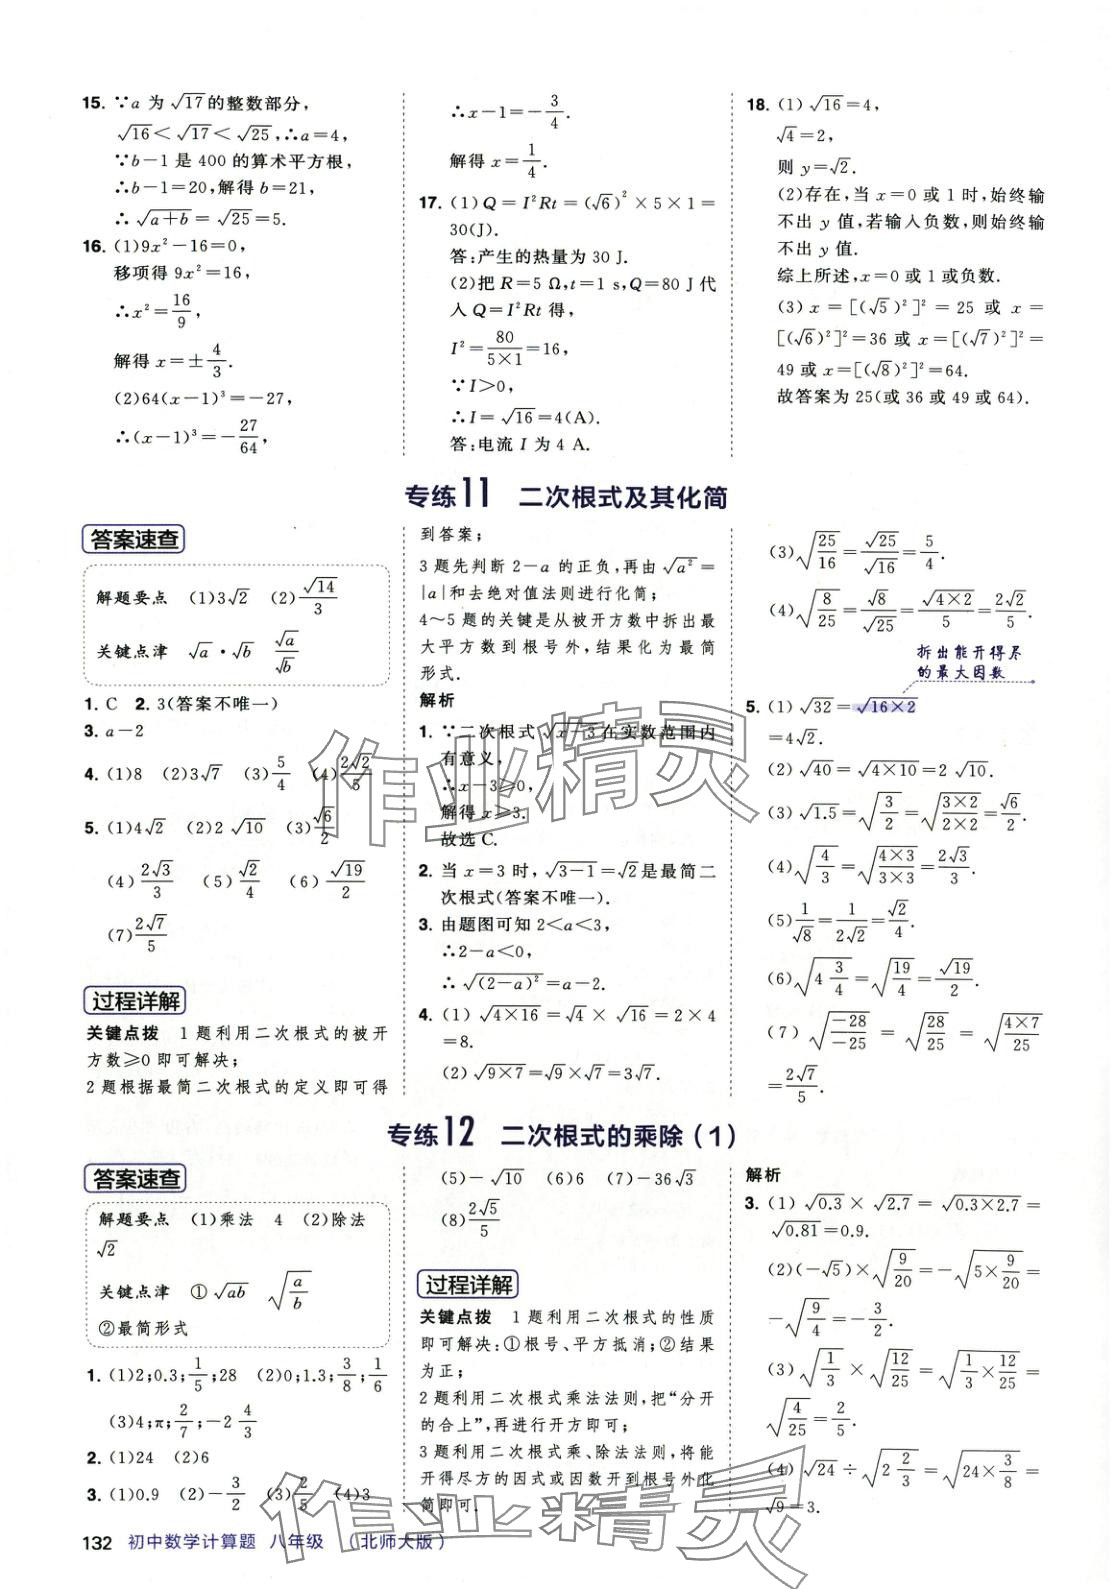 15. ∵a 为 √17的整数部分,
√16＜√17＜√25,∴a=4,
∵b−1 是 400 的算术平方根,
∴b−1=20,解得 b=21,
∴√(a+b)=√25=5.
16. (1)9x²−16=0,
移项得 9x²=16,
∴x²=16/9,
解得 x=±4/3.
(2)64(x−1)³=−27,
∴(x−1)³=−27/64,
∴x−1=−3/4.
解得 x=1/4.
17. (1)Q=I²Rt=(√6)²×5×1=
30(J).
答:产生的热量为 30 J.
(2)把 R=5 Ω,t=1 s,Q=80 J代
入 Q=I²Rt 得,
I²=80/(5×1)=16,
∵I＞0,
∴I=√16=4(A).
答:电流 I 为 4 A.
18. (1)√16=4,
√4=2,
则 y=√2.
(2)存在,当 x=0 或 1 时,始终输
不出 y 值,若输入负数,则始终输
不出 y 值.
综上所述,x=0 或 1 或负数.
(3) x=[(√5)²]²=25 或 x=
[(√6)²]²=36 或 x=[(√7)²]²=
49 或 x=[(√8)²]²=64.
故答案为 25(或 36 或 49 或 64).
专练11 二次根式及其化简
答案速查
解题要点 (1)3√2 (2)√14/3
关键点津 √a·√b √a/√b
1. C 2. 3(答案不唯一)
3. a−2
4. (1)8 (2)3√7 (3)5/4 (4)2√2/5
5. (1)4√2 (2)2√10 (3)√6/2
(4)2√3/3 (5)√2/4 (6)√19/2
(7)2√7/5
过程详解
关键点拨 1题利用二次根式的被开
方数≥0即可解决;
2题根据最简二次根式的定义即可得
到答案;
3题先判断 2−a 的正负,再由√a²=
|a|和去绝对值法则进行化简;
4～5 题的关键是从被开方数中拆出最
大平方数到根号外,结果化为最简
形式.
解析
1. ∵二次根式√(x−3)在实数范围内
有意义,
∴x−3≥0,
解得 x≥3.
故选 C.
2. 当 x=3 时,√(3−1)=√2是最简二
次根式(答案不唯一).
3. 由题图可知 2＜a＜3,
∴2−a＜0,
∴√((2−a)²)=a−2.
4. (1)√(4×16)=√4×√16=2×4
=8.
(2)√(9×7)=√9×√7=3√7.
(3)√(25/16)=√25/√16=5/4.
(4)√(8/25)=√8/√25=√(4×2)/5=2√2/5.
拆出能开得尽
的最大因数
5. (1)√32=√(16×2)
=4√2.
(2)√40=√(4×10)=2√10.
(3)√1.5=√(3/2)=√((3×2)/(2×2))=√6/2.
(4)√(4/3)=√((4×3)/(3×3))=2√3/3.
(5)1/√8=1/(2√2)=√2/4.
(6)√(4 3/4)=√(19/4)=√19/2.
(7)√(−28/−25)=√(28/25)=√((4×7)/25)
=2√7/5.
专练12 二次根式的乘除(1)
答案速查
解题要点 (1)乘法 4 (2)除法
√2
关键点津 ①√ab √(a/b)
②最简形式
1. (1)2;0.3;1/5;28 (2)0;1.3;3/8;1/6
(3)4;π;2/7;−2 4/3
2. (1)24 (2)6
3. (1)0.9 (2)−3/2 (3)2/5 (4)3
(5)−√10 (6)6 (7)−36√3
(8)2√5/5
过程详解
关键点拨 1题利用二次根式的性质
即可解决:①根号、平方抵消;②结果
为正;
2题利用二次根式乘法法则,把“分开
的合上”,再进行开方即可;
3题利用二次根式乘、除法法则,将能
开得尽方的因式或因数开到根号外化
简即可.
解析
3. (1)√0.3×√2.7=√(0.3×2.7)=
√0.81=0.9.
(2)(−√5)×√(9/20)=−√(5×9/20)=
−√(9/4)=−3/2.
(3)√(1/3)×√(12/25)=√(1/3×12/25)=
√(4/25)=2/5.
(4)√24÷√(2 2/3)=√(24×3/8)=
√9=3.
132 初中数学计算题 八年级 (北师大版)
作业精灵
作业精灵